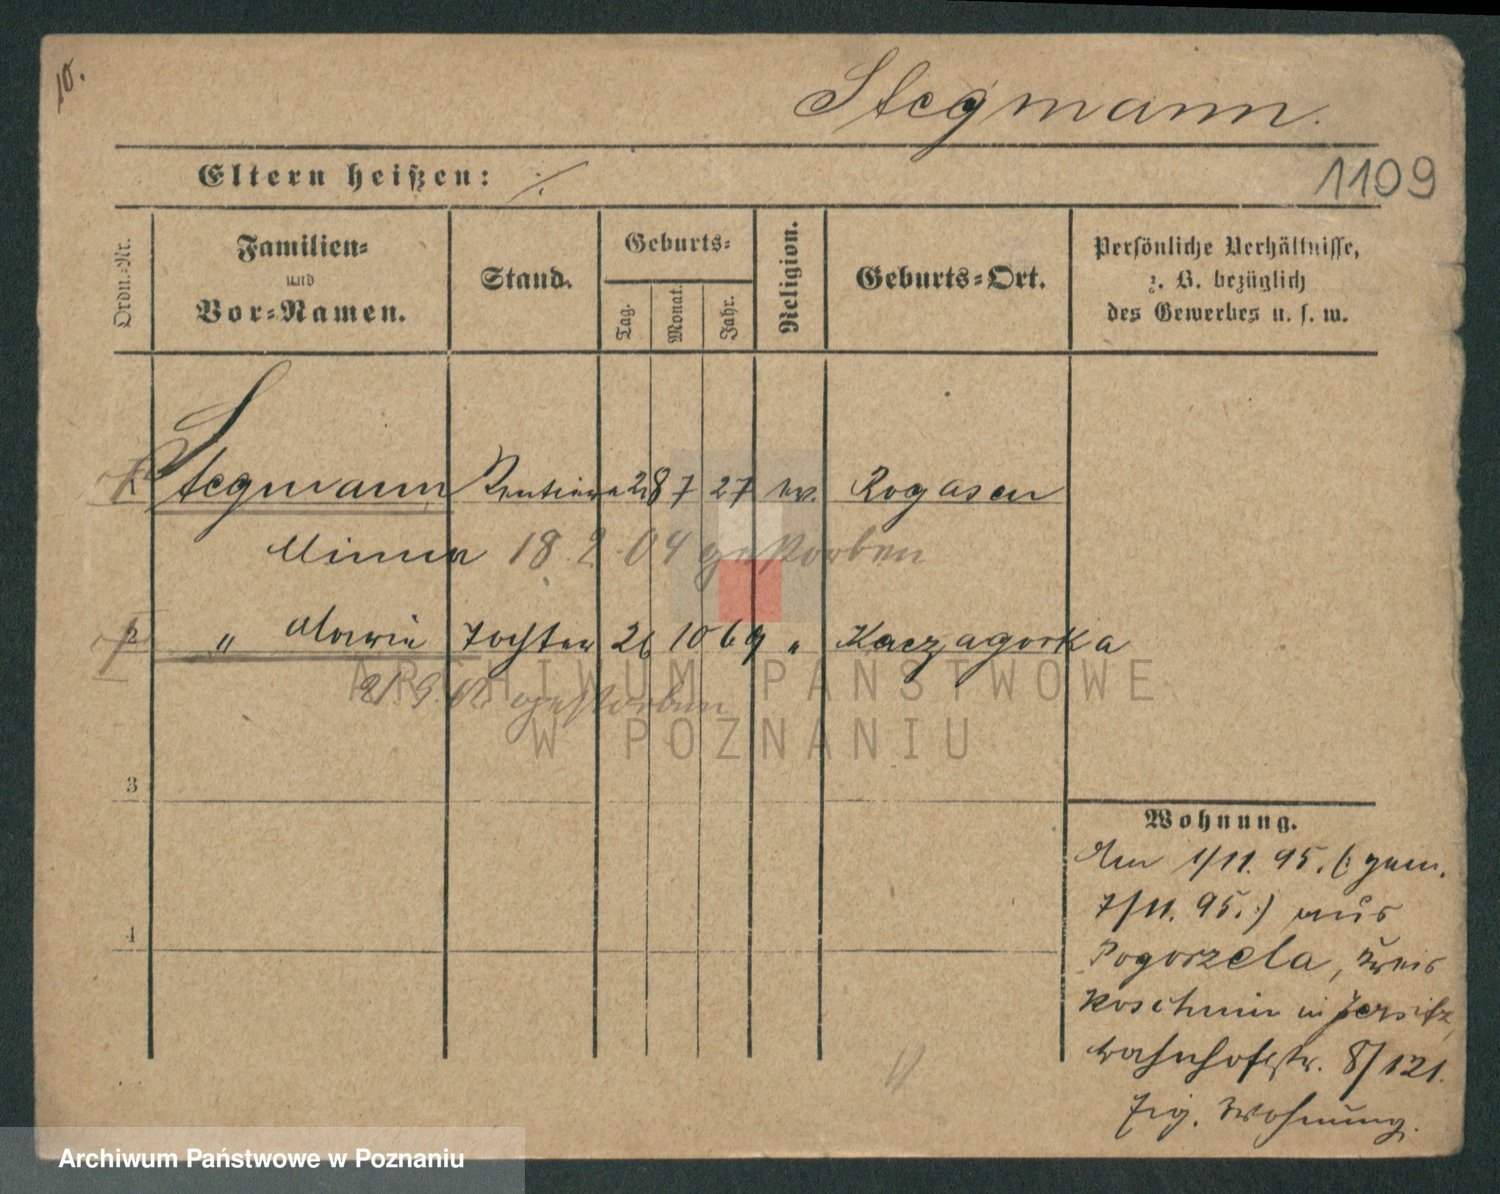 10.
Stegmann.
Eltern heißen: ·/.
1109
Ordn.-Nr.
Familien-
und
Vor-Namen.
Stand.
Geburts-
Tag.
Monat.
Jahr.
Religion.
Geburts-Ort.
Persönliche Verhältnisse,
z. B. bezüglich
des Gewerbes u. s. w.
1 Stegmann Rentiere 28 7 27 ev. Rogasen
Minna 18.2.04 gestorben
2 " Marie Tochter 26 10 69 " Kaczagorka
gestorben
3
4
Wohnung.
Am 1/11. 95. (: gem.
7/11. 95. :) aus
Pogorzela, Kreis
Koschmin in Jersitz,
Bahnhofstr. 8/121.
Eig. Wohnung.
ARCHIWUM PAŃSTWOWE
W POZNANIU
Archiwum Państwowe w Poznaniu